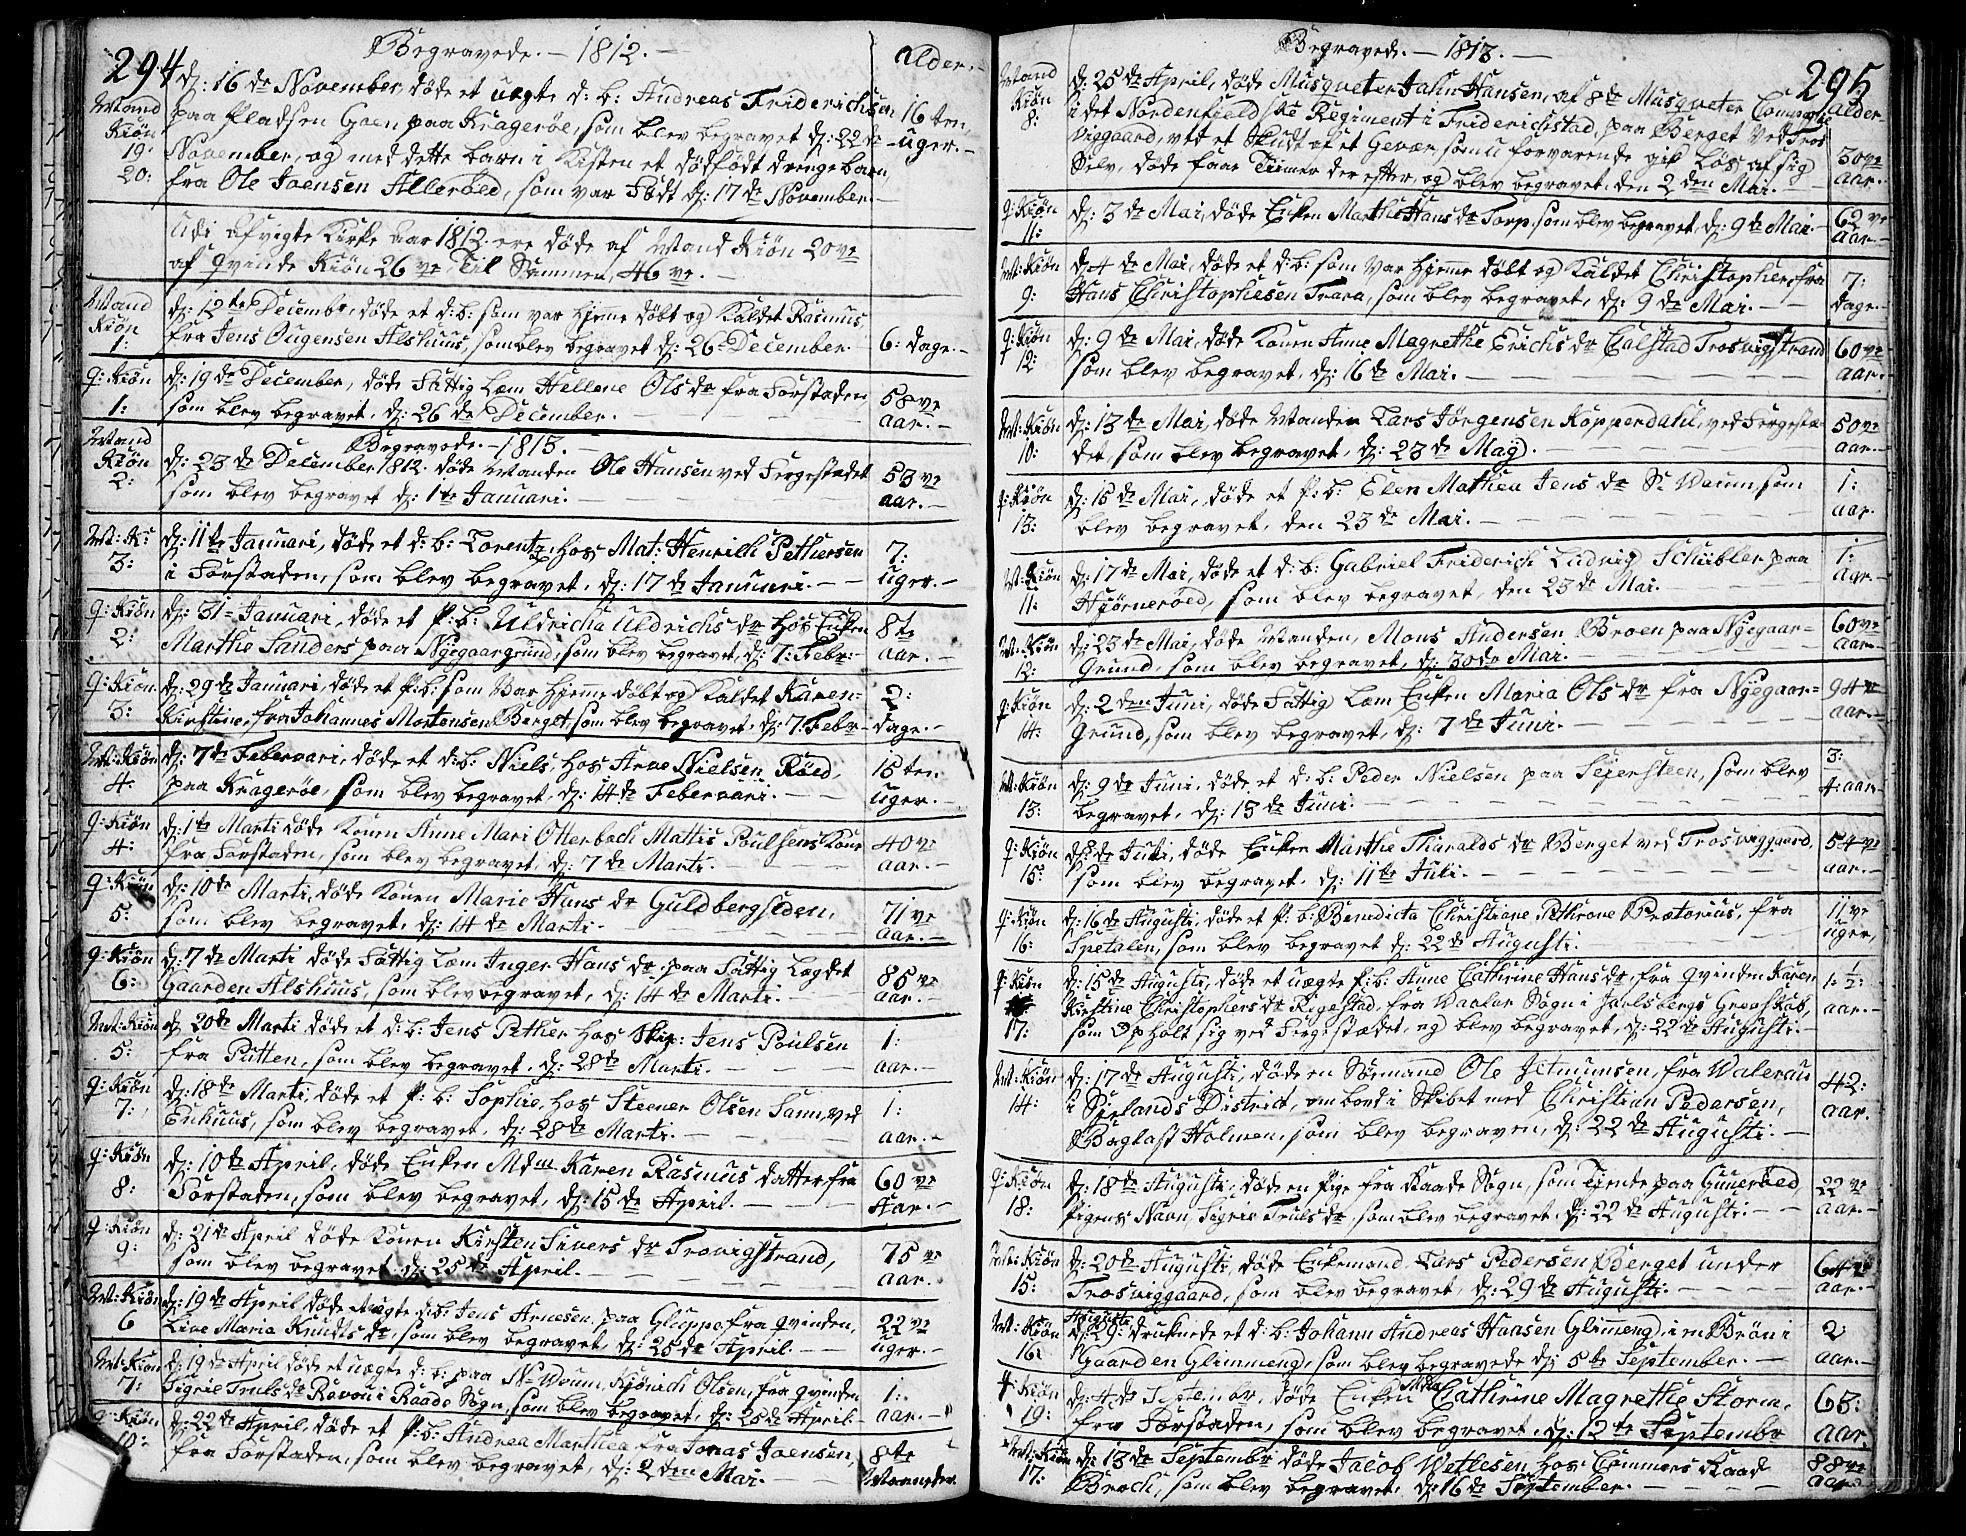 294
Begravede. — 1812. —
Alder. —
Mand Kiön 19: 20:
d: 16 de November, döde et uægte d: b: Andreas Friderichsen 16 ten
paa Pladsen Goen paa Kragerøe, som blev begravet d: 22 de uger. —
November, og med dette barn i Kisten et dödfödt drengebarn,
fra Ole Joensen Alleröed, som var Född d: 17 de November. —
Udi afvigte Kirke Aar 1812. ere döde af Mand Kiön 20 ve
af Qvinde Kiön 26 ve Til Sammen, 46 ve. —
Mand Kiön 1:
d: 12 te Decembr, döde et d: b: som var hieme döbt og Kaldet Rasmus,
fra Jens Ougensen Alshuus, som blev begravet d: 26 December. 6: dage. —
q: Kiön 1:
d: 19 de December, döde Fattig Læm Hellene Ols dr fra Forstaden, 58 ve
som blev begravet, d: 26 de December. aar. —
Begravede. — 1813. —
Mand Kiön 2:
d: 23 de December 1812. döde Manden Ole Hansen ved Fergestædet 53 ve
som blev begravet d: 1 te Januari. aar. —
M: Ki: 3:
d: 11 te Januari, döde et d: b: Lorentz, hos Mat: Henrich Pethersen 7:
i Forstaden, som blev begravet, d: 17 de Januari. — uger. —
q: Kiön 2:
d: 31 Januari, döde et P: b: Uldricha Uldrichs dr hos Enken 8 te
Marthe Sanders paa Nyegaargrund, som blev begravet, d: 7: Febr: aar. —
q: Kiön 3:
d: 29 de Januari, döde et P: b: som var hieme döbt og Kaldet Karen 2:
Kirstine, fra Johannes Mortensen Berget, som blev begravet, d: 7: Febr — dage. —
M: Kiön 4:
d: 7 de Februari, döde et d: b: Niels, hos Arne Nielsen Röed, 15 ten
paa Kragerøe, som blev begravet, d: 14 de Februari. — uger. —
q: Kiön 4:
d: 1 te Marti döde Konen Anne Mari Otterbech Mattis Poulsens Kone 40 ve
fra Forstaden, som blev begravet, d: 7 de Marti. aar. —
q: Kiön 5:
d: 10 de Marti, döde Konen Marie Hans dr Guldbergseden, 71 ve
som blev begravet, d: 14 de Marti. aar. —
q: Kiön 6:
d: 7 de Marti döde Fattig Læm Inger Hans dr paa Fattig Lægdet 85 ve
Gaarden Alshuus, som blev begravet, d: 14 de Marti. — aar. —
M: Kiön 5:
d: 20 de Marti döde et d: b: Jens Pether hos Skip: Jens Poulsen 1:
fra Putten, som blev begravet, d: 28 de Marti. — aar. —
q: Kiön 7:
d: 18 de Marti, döde et P: b: Sophie, hos Steener Olsen Sann, ved 1:
Enhuus, som blev begravet, d: 28 de Marti. — aar. —
q: Kiön 8:
d: 10 de April, döde Enken Mdm Karen Rasmus datter fra 60 ve
Forstaden, som blev begravet, d: 15 de April. — Aar. —
q: Kiön 9:
d: 21 de April döde Konen Kirsten Sivers dr Trosvigstrand, 75 ve
som blev begravet d: 25 de April. — aar.
M: Kiön 6
d: 19 de April döde et uægte d: b: Jens Arnesen, paa Gluppe, fra Qvinden, 22 ve
Live Maria Knudts dr, som blev begravet, d: 25 de April. — uger. —
M: Kiön 7:
d: 19 de April döde et uægte d: b: paa N: Woum, Kjönich Olsen, fra Qvinden 1:
Sigrie Truls dr Ravou i Raade Sogn, som blev begravet, d: 25 de April. aar. —
q: Kiön 10:
d: 22 de April, döde et P: b: Andrea Marthea fra Jonas Joensen, 8 te
fra Forstaden, som blev begravet, d: 2 den Mai. Maaneder.
Begravede. — 1813. —
295
alder
Mand Kiön 8:
d: 25 de April, döde Musqveter Jahn Hansen, af 8 de Musqveter Compagnie
i det Nordenfieldske Regiment i Friderichstad, paa Berget ved Tros
viggaard, ved et Skudt af et Gevær, som u forvarende gik Løs af sig 30 ve
Selv, döde faar Timer der efter, og blev begravet, den 2 den Mai. aar. —
q: Kiön 11:
d: 3 de Mai, döde Enken Marthe Hans dr Torp, som blev begravet, d: 9 de Mai. — 62 ve aar. —
M: Kiön 9:
d: 4 de Mai, döde et d: b: som var hieme döbt og Kaldet Christopher, fra 7:
Hans Christophersen Trara, som blev begravet, d: 9 de Mai. — dage. —
q: Kiön 12:
d: 9 de Mai, döde Konen Anne Magrethe Erichs dr Calstad Trosvigstrand 60 ve
som blev begravet, d: 16 de Mai. — aar. —
M: Kiön 10:
d: 13 de Mai, döde Manden Lars Jörgensen Kopperdahl, ved Fergestæ 50 ve
det, som blev begravet, d: 23 de Maj. — aar. —
q: Kiön 13:
d: 15 de Mai, döde et P: b: Elen Mathea Jens dr S: Woum, som 1:
blev begravet, den 23 de Mai. — aar. —
M: Kiön 11:
d: 17 de Mai, döde et d: b: Gabriel Friderich Ludvig Schübler paa 1:
Hjörneröed, som blev begravet, den 23 de Mai. aar. —
M: Kiön 12:
d: 23 de Mai, döde Manden, Mons Andersen Broen paa Nyegaar= 60 ve
Grund, som blev begravet, d: 30 de Mai. — aar. —
q: Kiön 14:
d: 2 den Juni, döde Fattig Læm Enken Maria Ols dr fra Nyegaar= 94 ve
Grund, som blev begravet, d: 7 de Juni. — aar. —
M: Kiön 13:
d: 9 de Juni, döde et d: b: Peder Nielsen paa Sejersteen, som blev 3:
begravet, d: 13 de Juni. — 4: aar. —
q: Kiön 15:
d: 5 de Juli, döde Enken Marthe Tharalds dr Berget ved Trosviggaard, 54 ve
som blev begravet, d: 11 te Juli. — aar. —
q: Kiön 16:
d: 16 de Augusti, döde et P: b: Benedicta Christiane Pethrone Prætorius, fra 11 ve
Spetalen, som blev begravet d: 22 de Augusti. — uger,
q: Kiön 17:
d: 15 de Augusti, döde et uægte P: b: Anne Cathrine Hans dr, fra Qvinden Karen 1 ½:
Kirstine Christophers dr Rigestad, fra Waaler Sogn i Jarlsbergs Grevskab, aar. —
som Opholt sig ved Fergestædet, og blev begravet, d: 22 de Augusti. —
M: Kiön 14:
d: 17 de Augusti, döde en Sømand Ole Jetmunsen, fra Walerau 42:
i Sielands District, om bord i Skibet med Christian Pedersen, aar.
Baglast Holmen, som blev begraven, d: 22 de Augusti. —
q: Kiön 18:
d: 18 de Augusti, döde en Pige fra Raade Sogn, som tjente paa Guneröed 22 ve
Pigens Navn Sigrie Truls dr som blev begravet, d: 22 de Augusti. — aar. —
M: Kiön 15:
d: 20 de Augusti, döde Enkemand Lars Pedersen Berget under 64 ve
Trosviggaard, som blev begravet, d: 29 de Augusti. — aar. —
M: Kiön 16:
Augusti
d: 29: druknede et d: b: Johann Andreas Hansen Glimmeng, i en Brön i 2:
Gaarden Glimmeng, som blev begravede d: 5 te September. — aar. —
q: Kiön 19:
d: 4 de Septembr, döde Enken Mdm Cathrine Magrethe Storm, 63:
fra Forstaden, som blev begravet, d: 12 te Septembr aar.
M: Kiön 17:
d: 13 de Septembr döde Jacob Wetlesen hos Commers Raad 88 ve
Broch, som blev begravet, d: 16 de September. — aar.